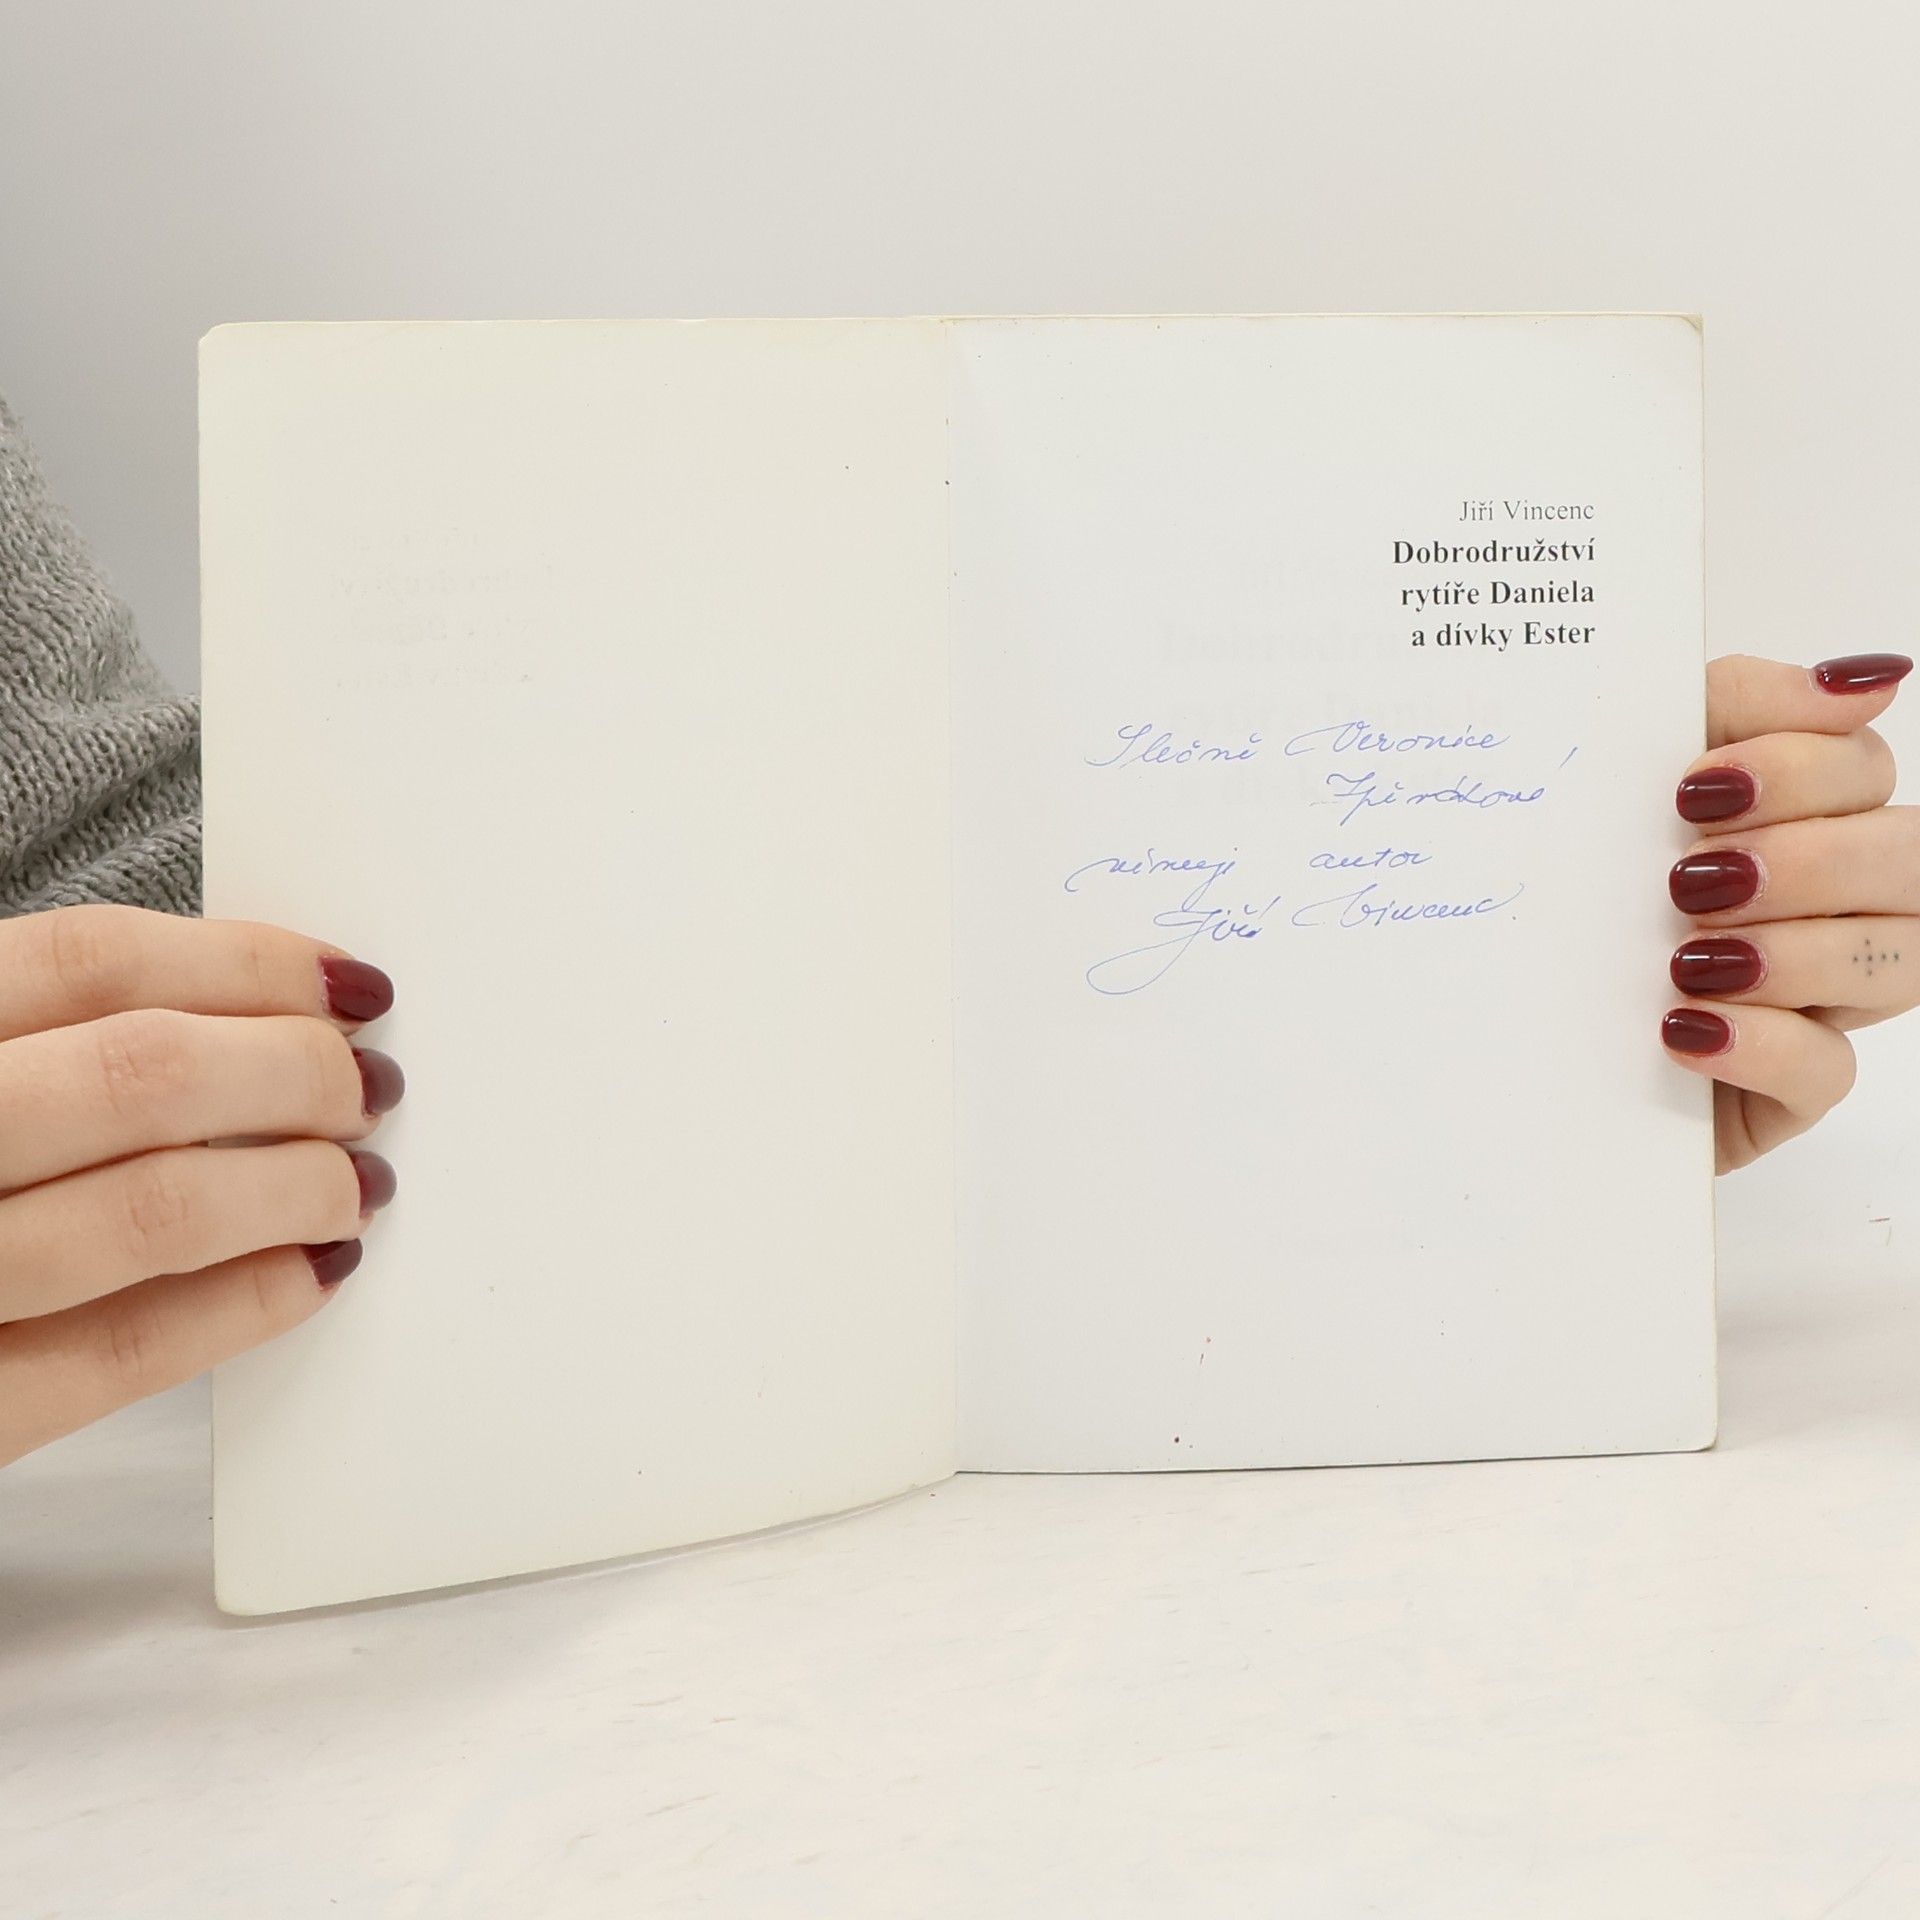 Jiří Vincenc
Dobrodružství
rytíře Daniela
a dívky Ester
Slečně Veronice
věnuje autor
Jiří Vincenc.